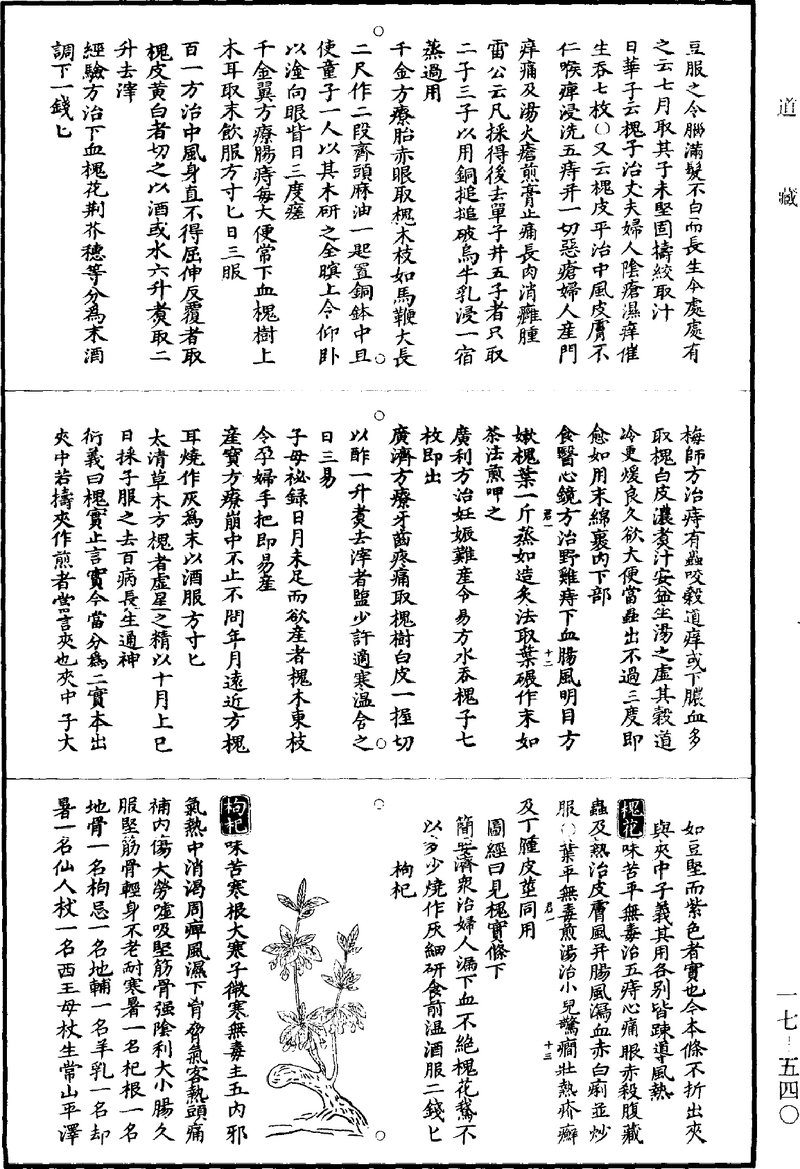 道藏
豆服之令腦滿髮不白而長生今處處有
之云七月取其子未堅固擣絞取汁
日華子云槐子治丈夫婦人陰瘡濕痒催
生吞七枚〇又云槐皮平治中風皮膚不
仁喉痺浸洗五痔并一切惡瘡婦人産門
痒痛及湯火瘡煎膏止痛長肉消癰腫
雷公云凡採得後去單子并五子者只取
二子三子以用銅搥搥破烏牛乳浸一宿
蒸過用
千金方療胎赤眼取槐木枝如馬鞭大長
二尺作二段齊頭麻油一匙置銅鉢中且
使童子一人以其木研之至暝上令仰卧
以塗向眼眥日三度瘥
千金翼方療腸痔每大便常下血槐樹上
木耳取末飲服方寸匕日三服
百一方治中風身直不得屈伸反覆者取
槐皮黄白者切之以酒或水六升煑取二
升去滓
經驗方治下血槐花荆芥穗等分爲末酒
調下一錢匕
梅師方治痔有蟲咬穀道痒或下膿血多
取槐白皮濃煑汁安盆坐湯之虛其穀道
冷更煖良久欲大便當蟲出不過三度即
愈如用末綿裹内下部
食醫心鏡方治野雞痔下血腸風明目方
嫩槐葉一斤蒸如造炙法取葉碾作末如
茶法煎呷之
廣利方治妊娠難産令易方水吞槐子七
枚即出
廣濟方療牙齒疼痛取槐樹白皮一握切
以酢一升煑去滓着鹽少許適寒温含之
日三易
子母祕録日月未足而欲産者槐木東枝
令孕婦手把即易産
産寶方療崩中不止不問年月遠近方槐
耳燒作灰爲末以酒服方寸匕
太清草木方槐者虛星之精以十月上巳
日採子服之去百病長生通神
衍義曰槐實止言實今當分爲二實本出
夾中若擣夾作煎者當言夾也夾中子大
如豆堅而紫色者實也今本條不折出夾
與夾中子義其用各別皆疎導風熱
槐花味苦平無毒治五痔心痛眼赤殺腹藏
蟲及熱治皮膚風并腸風瀉血赤白痢並炒
服〇葉平無毒煎湯治小兒驚癇壯熱疥癬
及丁腫皮莖同用
圖經曰見槐實條下
簡要濟衆治婦人漏下血不絶槐花鵝不
以多少燒作灰細研食前温酒服二錢匕
枸杞
枸杞味苦寒根大寒子微寒無毒主五内邪
氣熱中消渴周痺風濕下胷脅氣客熱頭痛
補内傷大勞嘘吸堅筋骨强陰利大小腸久
服堅筋骨輕身不老耐寒暑一名杞根一名
地骨一名枸忌一名地輔一名羊乳一名却
暑一名仙人杖一名西王母杖生常山平澤
君一
十二
君一
十三
一七-五四〇